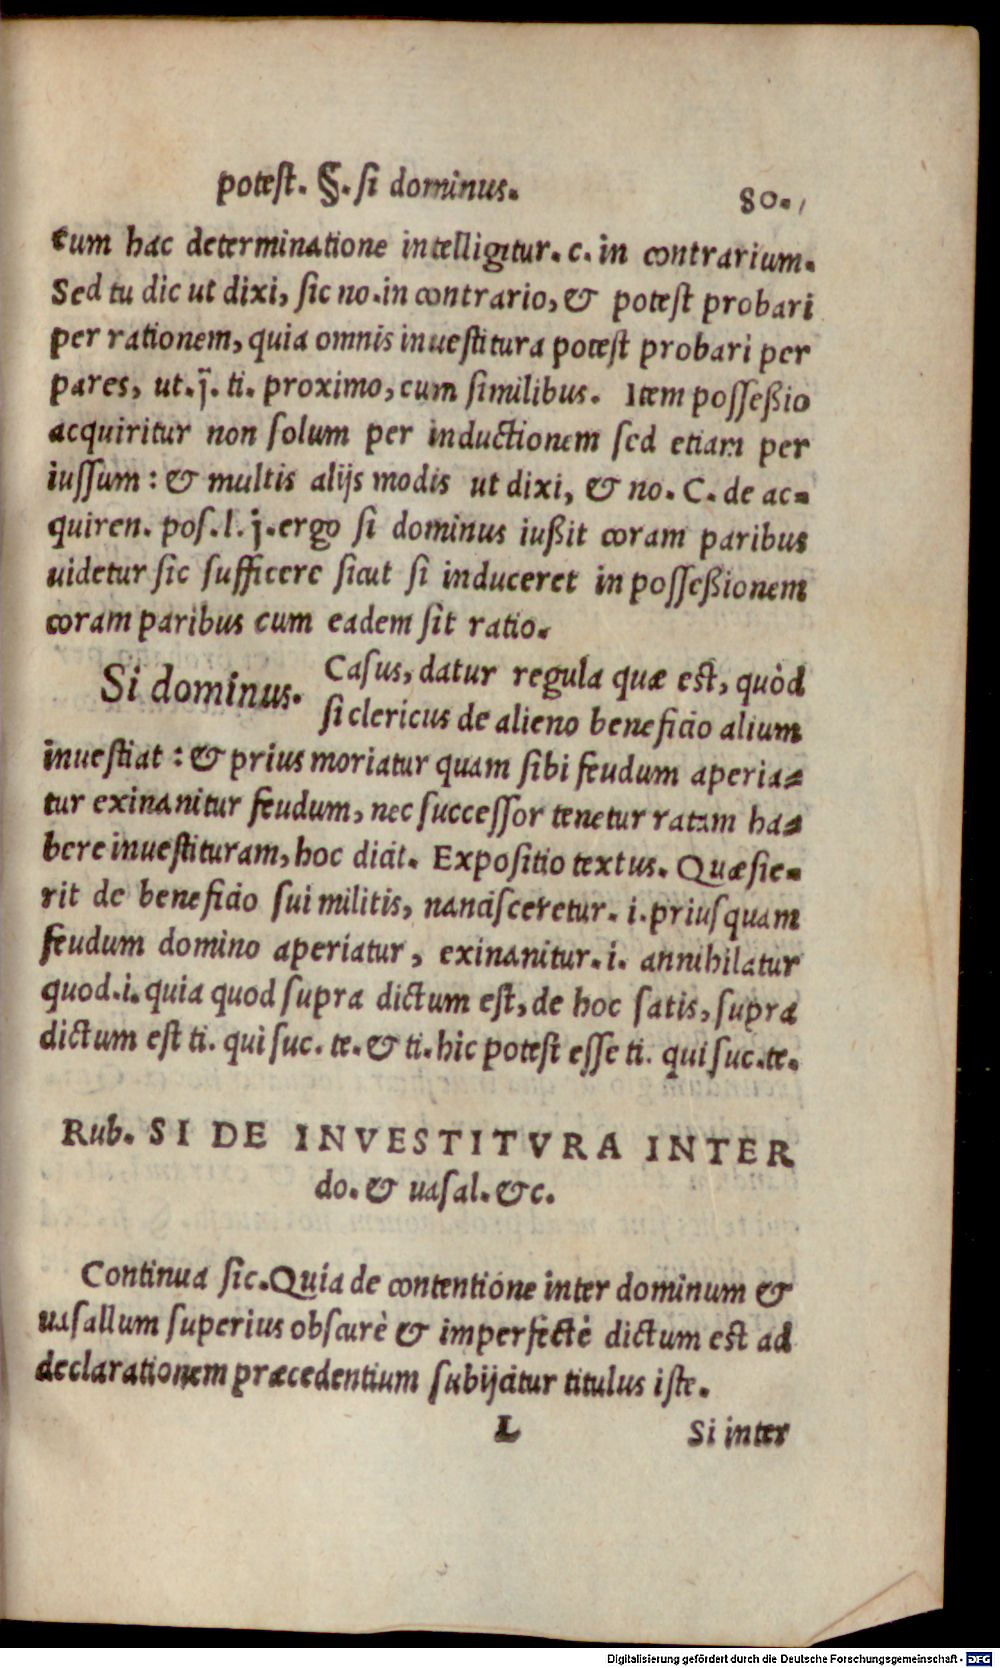 potest. §. si dominus. 80.
cum hac determinatione intelligitur. c. in contrarium.
Sed tu dic ut dixi, sic no. in contrario, & potest probari
per rationem, quia omnis inuestitura potest probari per
pares, ut. j̄. ti. proximo, cum similibus. Item posseßio
acquiritur non solum per inductionem sed etiam per
iussum: & multis alijs modis ut dixi, & no. C. de ac-
quiren. pos. l. j. ergo si dominus iußit coram paribus
uidetur sic sufficere sicut si induceret in posseßionem
coram paribus cum eadem sit ratio.
Si dominus. Casus, datur regula quæ est, quòd
si clericus de alieno beneficio alium
inuestiat: & prius moriatur quam sibi feudum aperia-
tur exinanitur feudum, nec successor tenetur ratam ha-
bere inuestituram, hoc dicit. Expositio textus. Quæsie-
rit de beneficio sui militis, nancisceretur. i. priusquam
feudum domino aperiatur, exinanitur. i. annihilatur
quod. i. quia quod supra dictum est, de hoc satis, supra
dictum est ti. qui suc. te. & ti. hic potest esse ti. qui suc. te.
Rub. SI DE INVESTITVRA INTER
do. & uasal. &c.
Continua sic. Quia de contentione inter dominum &
uasallum superius obscurè & imperfectè dictum est ad
declarationem præcedentium subijcitur titulus iste.
L Si inter
Digitalisierung gefördert durch die Deutsche Forschungsgemeinschaft - DFG